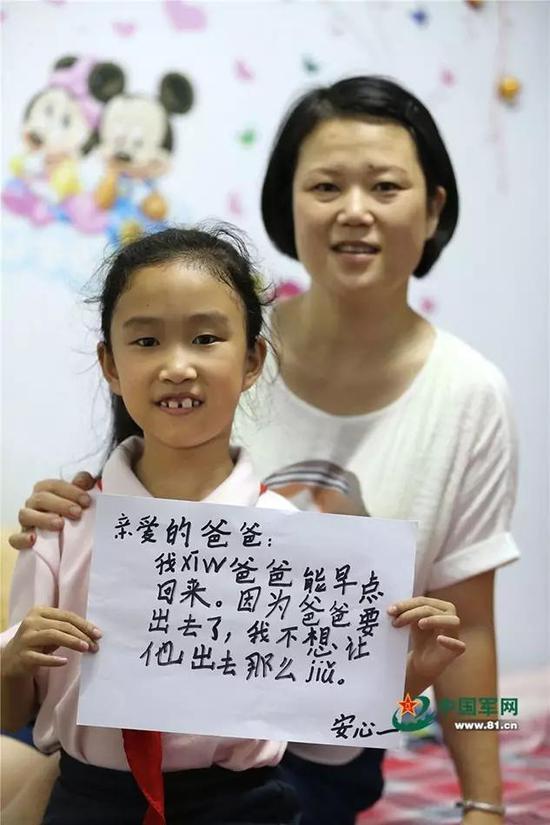 亲爱的爸爸：
我xīw爸爸能早点
回来。因为爸爸要
出去了，我不想让
他出去那么jiǔ。
安心
中国军网
www.81.cn